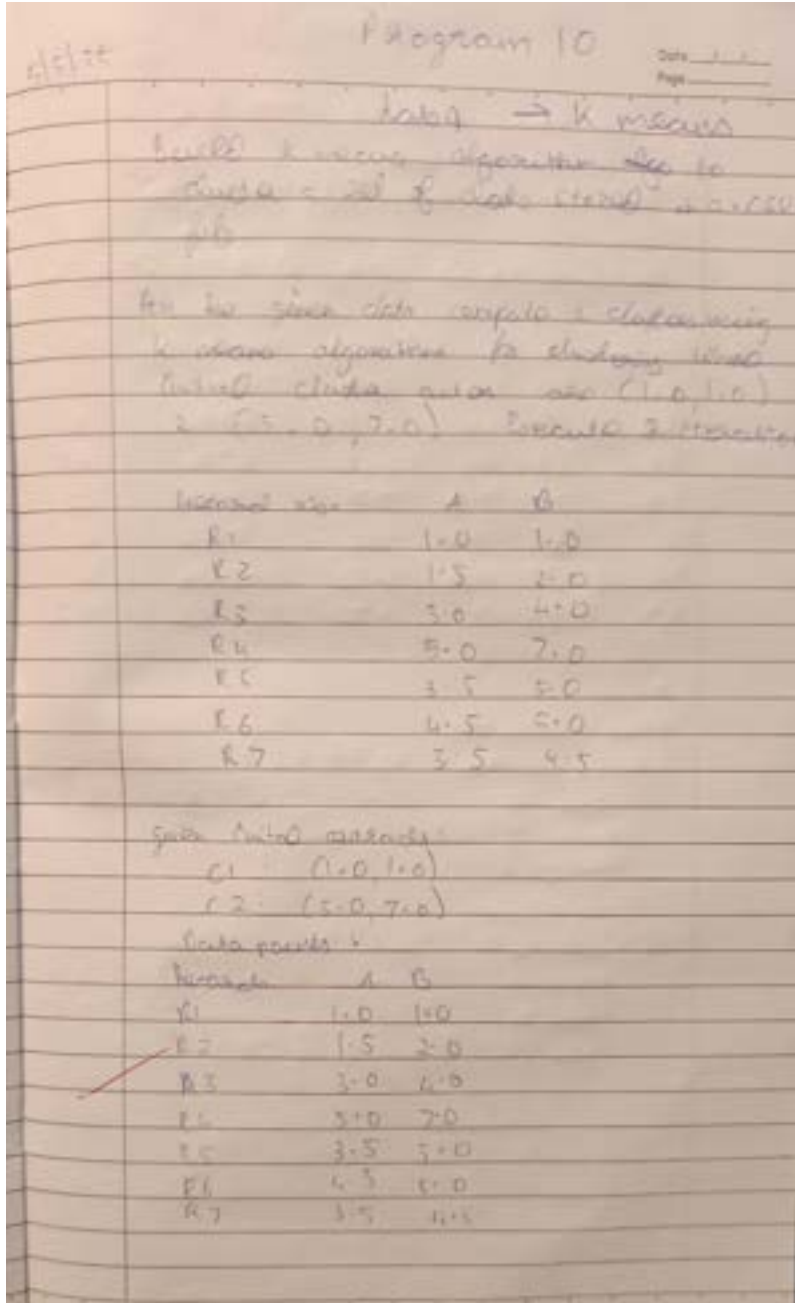 Program 10
Date
Page
Lab 9 → K means
Build k means algorithm to
cluster a set of data stored in a .CSV
file
For the given data compute 2 clusters using
k means algorithm for clustering where
initial cluster are (1.0, 1.0)
& (5.0, 7.0) Execute 2 iterations
Record A B
R1 1.0 1.0
R2 1.5 2.0
R3 3.0 4.0
R4 5.0 7.0
R5 3.5 5.0
R6 4.5 5.0
R7 3.5 4.5
Given initial centroids:
C1: (1.0, 1.0)
C2: (5.0, 7.0)
Data points:
Records A B
R1 1.0 1.0
R2 1.5 2.0
R3 3.0 4.0
R4 5.0 7.0
R5 3.5 5.0
R6 4.5 5.0
R7 3.5 4.5